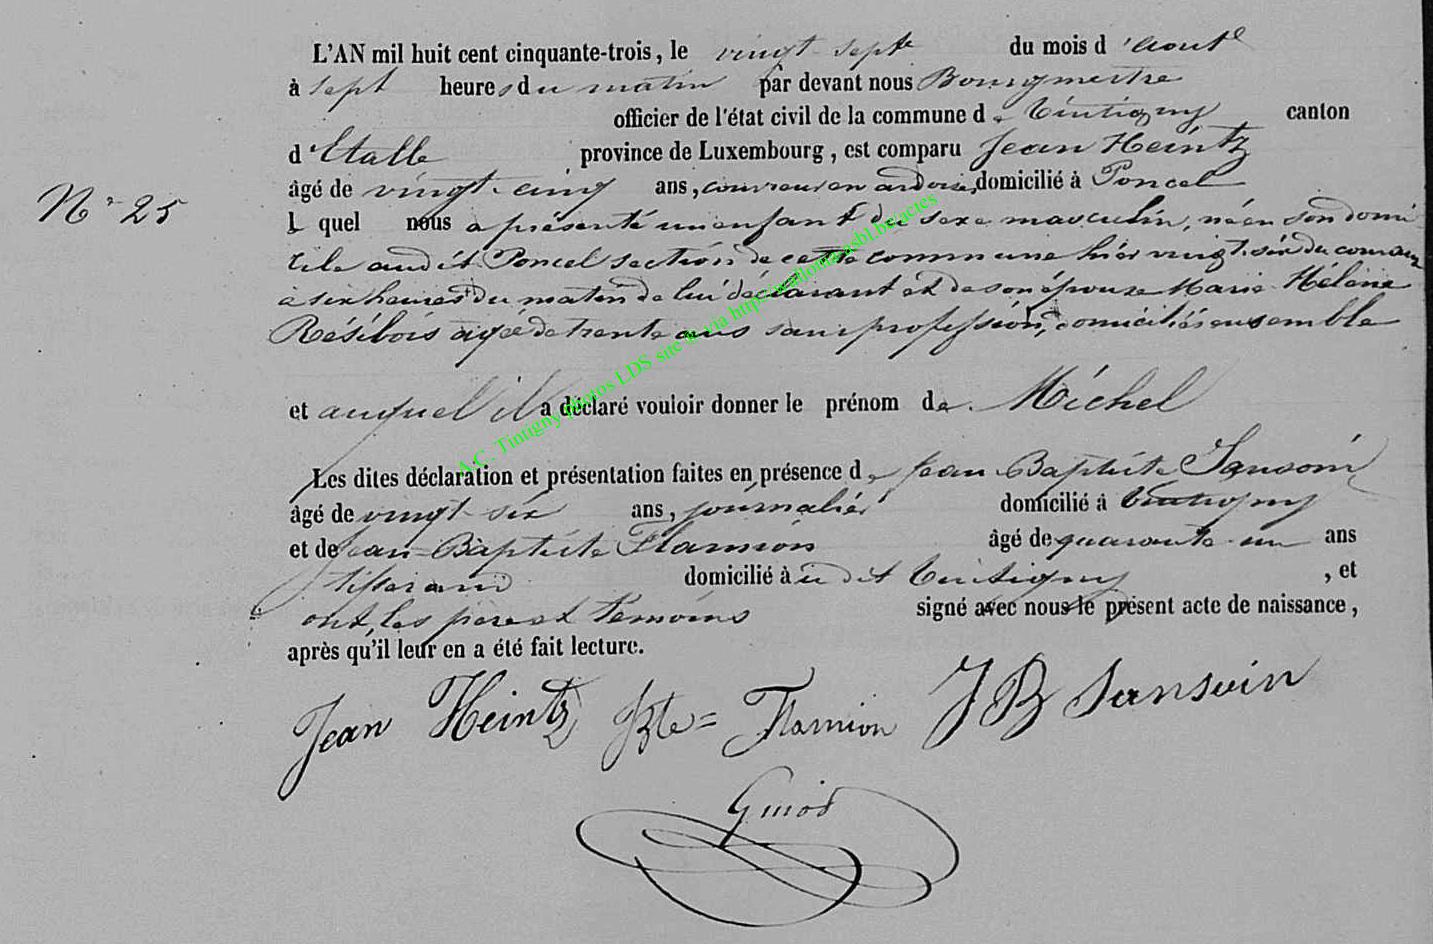 L'AN mil huit cent cinquante-trois, le vingt sept du mois d'août
à sept heures du matin par devant nous Bourgmestre
officier de l'état civil de la commune de Tintigny canton
d'Etalle province de Luxembourg, est comparu Jean Heintz
âgé de vingt-cinq ans, couvreur en ardoise, domicilié à Poncel
N° 25
L quel nous a présenté un enfant de sexe masculin, né en son domi
cile audit Poncel section de cette commune hier vingt-six du courant
à six heures du matin de lui déclarant et de son épouse Marie Hélène
Résibois agée de trente ans sans profession, domiciliés ensemble
et auquel il a déclaré vouloir donner le prénom de Michel
Les dites déclaration et présentation faites en présence de Jean Baptiste Sansoin
âgé de vingt-six ans, journalier domicilié à Tintigny
et de Jean-Baptiste Flamion âgé de quarante-un ans
tisserand domicilié à dit Tintigny, et
ont, les père et témoins signé avec nous le présent acte de naissance,
après qu'il leur en a été fait lecture.
Jean Heintz JBte= Flamion JB Sansoin
A.C. Tintigny photos LDS site & via http://wallonia.asbl.be/actes